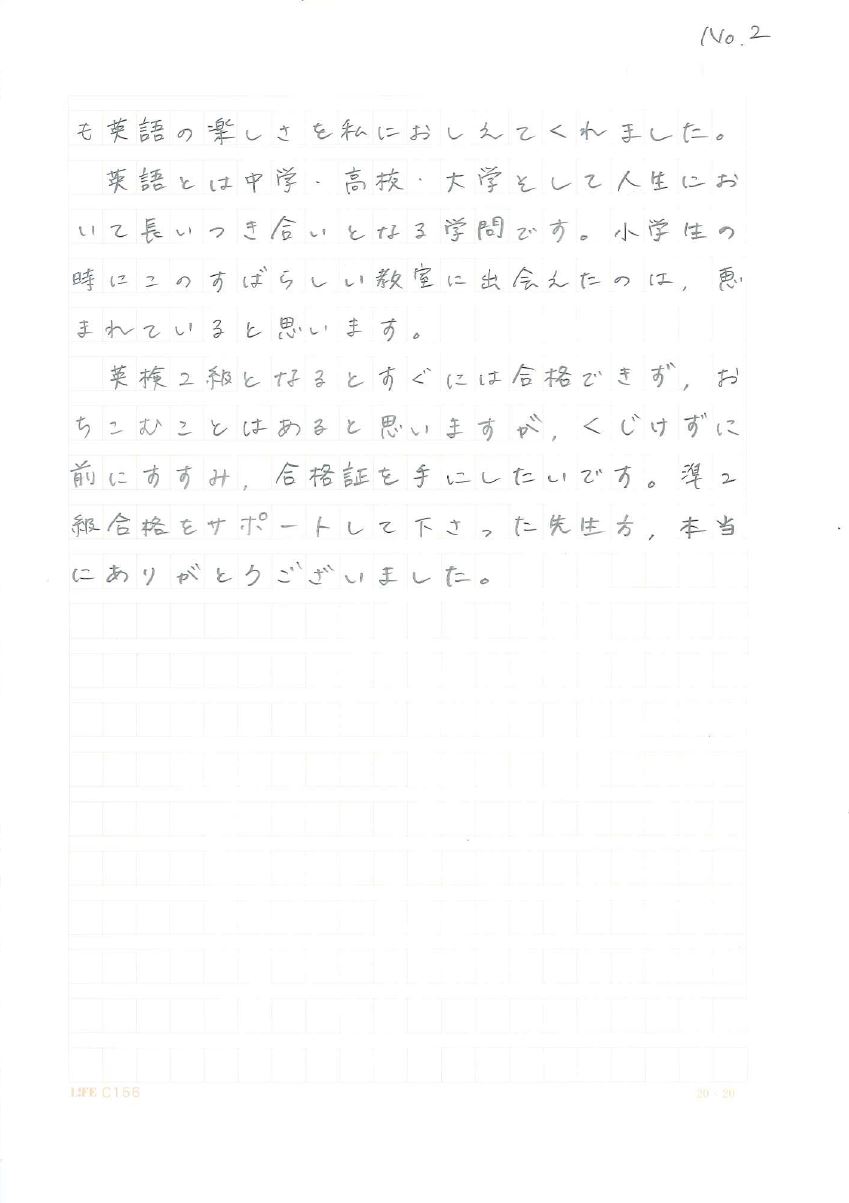 No.2
も英語の楽しさを私におしえてくれました。
英語とは中学・高校・大学そして人生にお
いて長いつき合いとなる学問です。小学生の
時にこのすばらしい教室に出会えたのは，恵
まれていると思います。
英検2級となるとすぐには合格できず，お
ちこむことはあると思いますが，くじけずに
前にすすみ，合格証を手にしたいです。準2
級合格をサポートして下さった先生方，本当
にありがとうございました。
LIFE C156
20×20